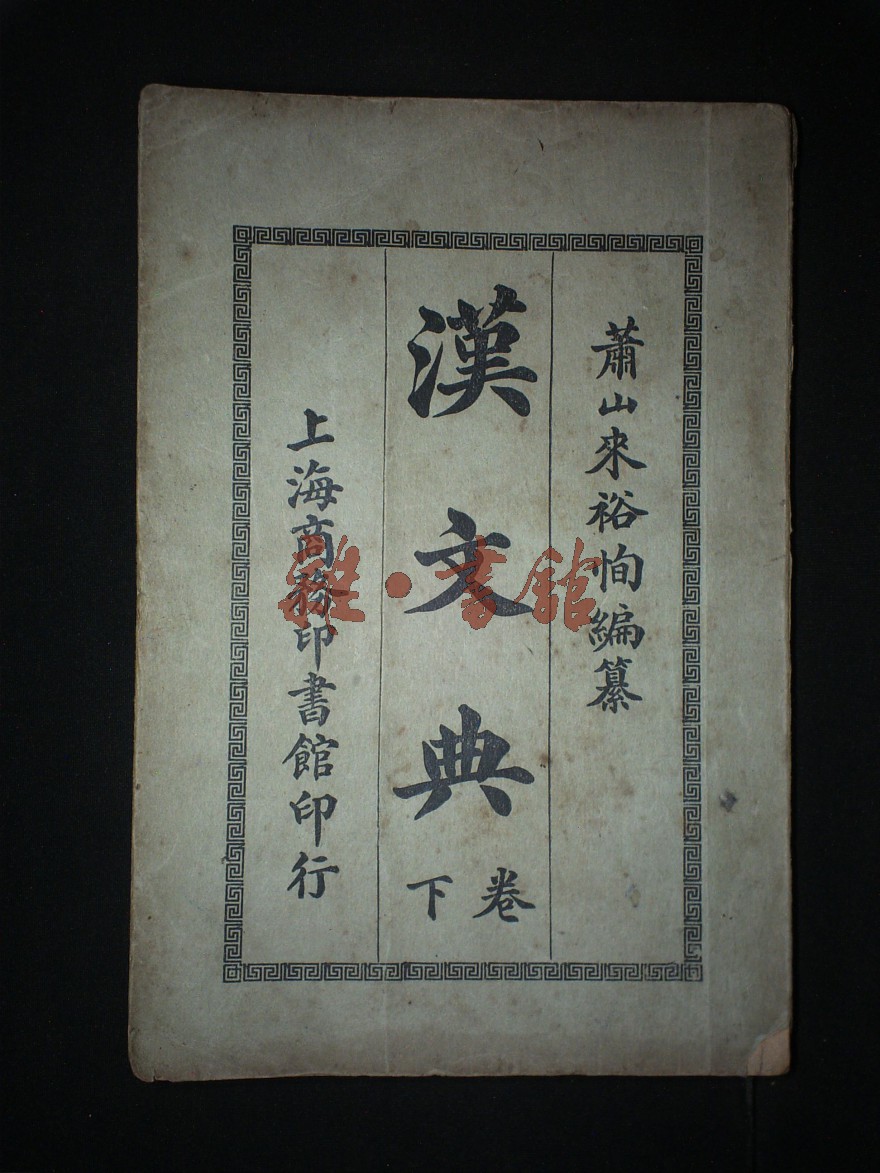 蕭山來裕恂編纂
漢文典
卷下
上海商務印書館印行
雜·書館